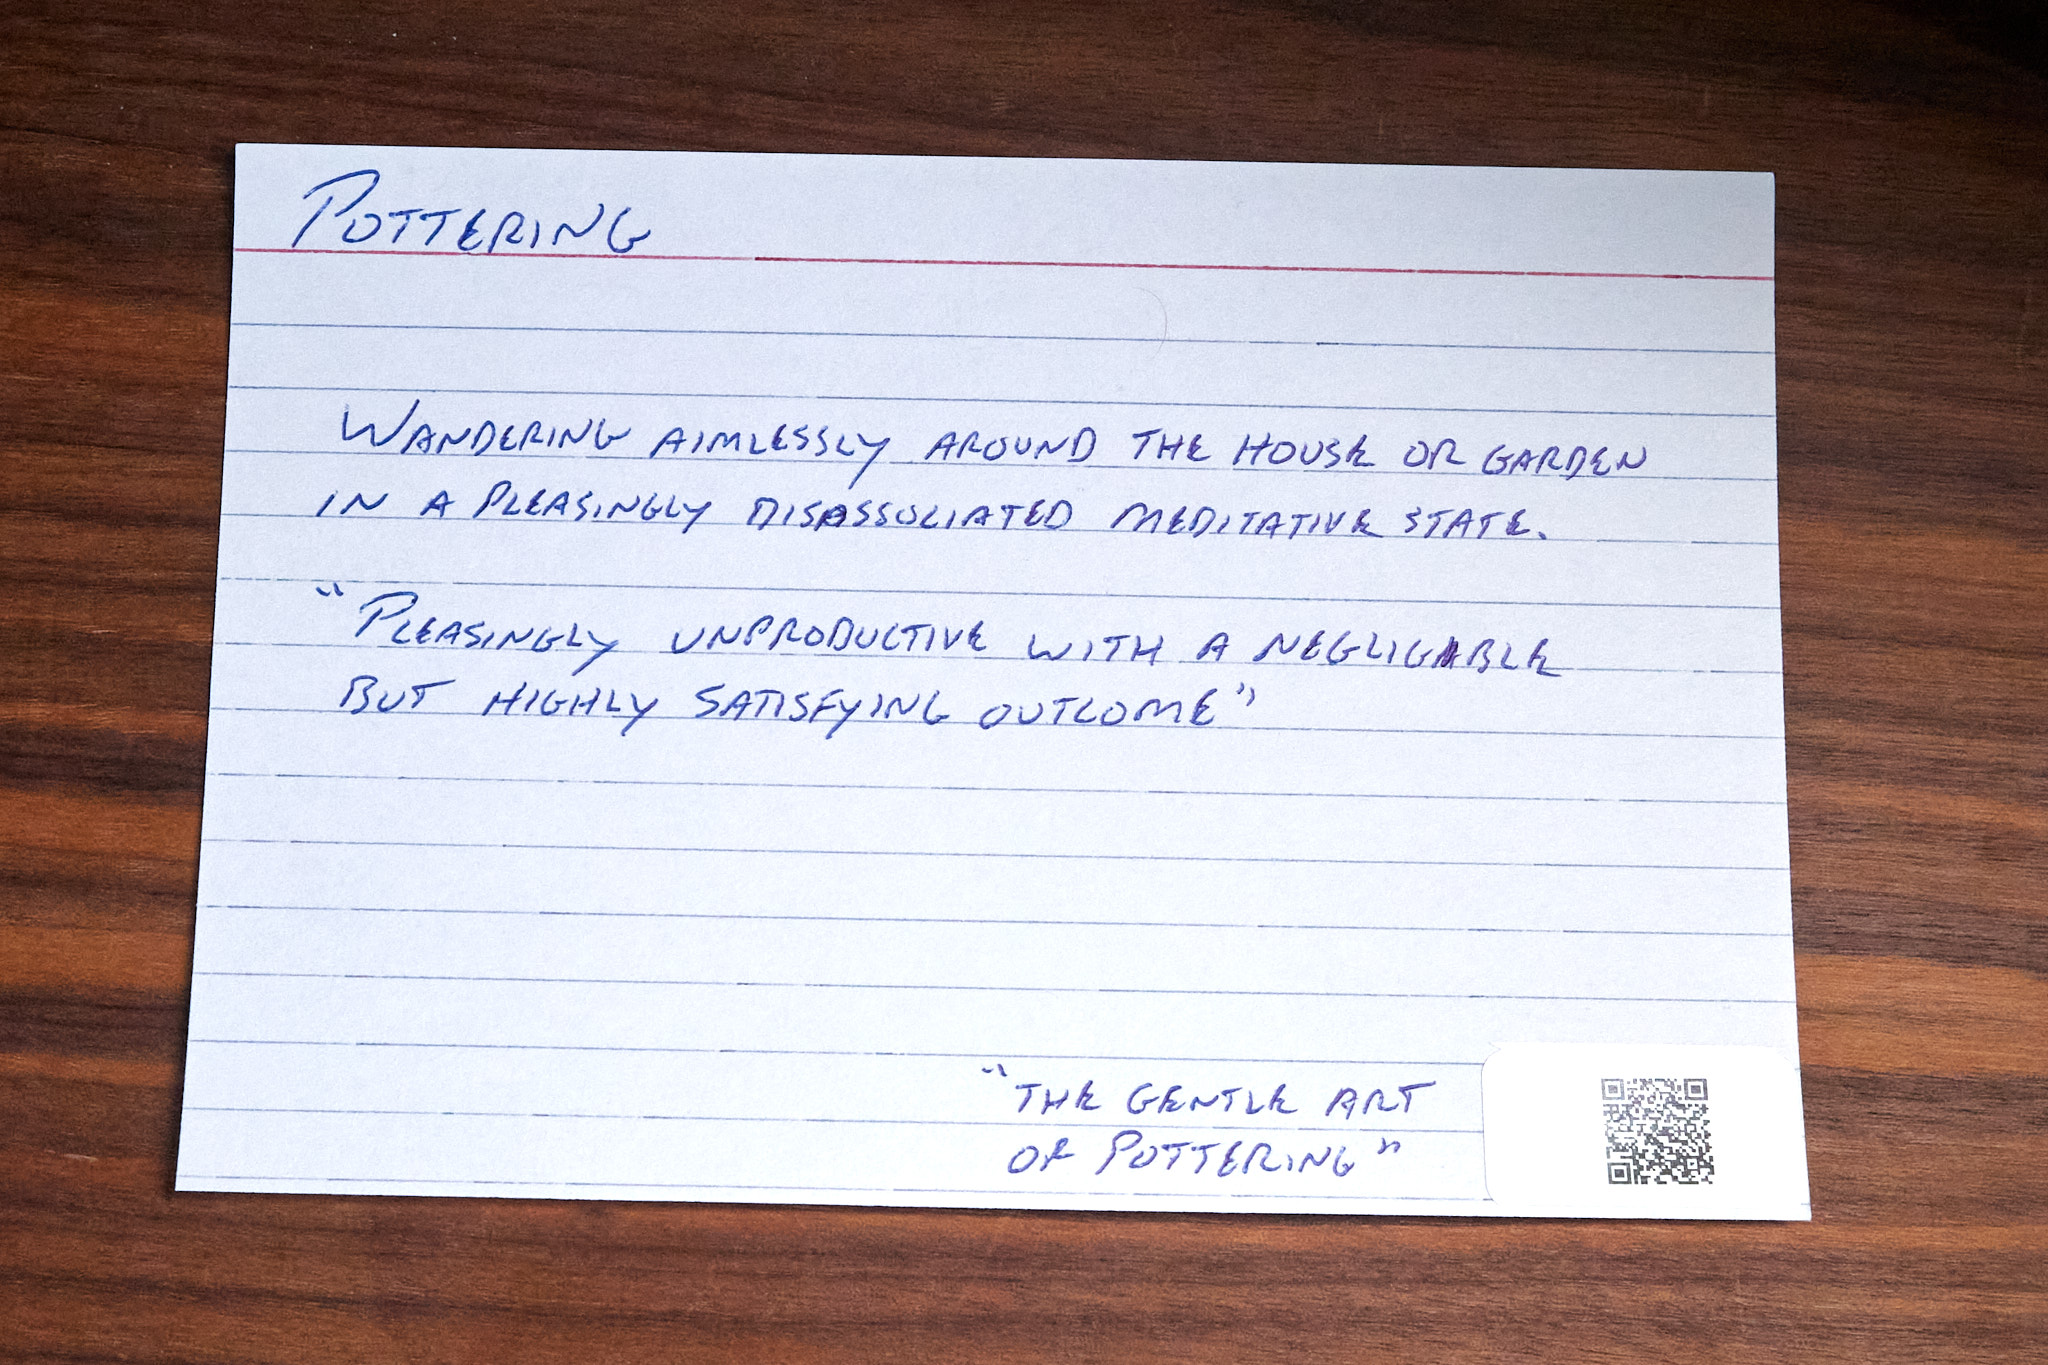 POTTERING
WANDERING AIMLESSLY AROUND THE HOUSE OR GARDEN
IN A PLEASINGLY DISASSOCIATED MEDITATIVE STATE.
"PLEASINGLY UNPRODUCTIVE WITH A NEGLIGABLE
BUT HIGHLY SATISFYING OUTCOME"
"THE GENTLE ART
OF POTTERING"